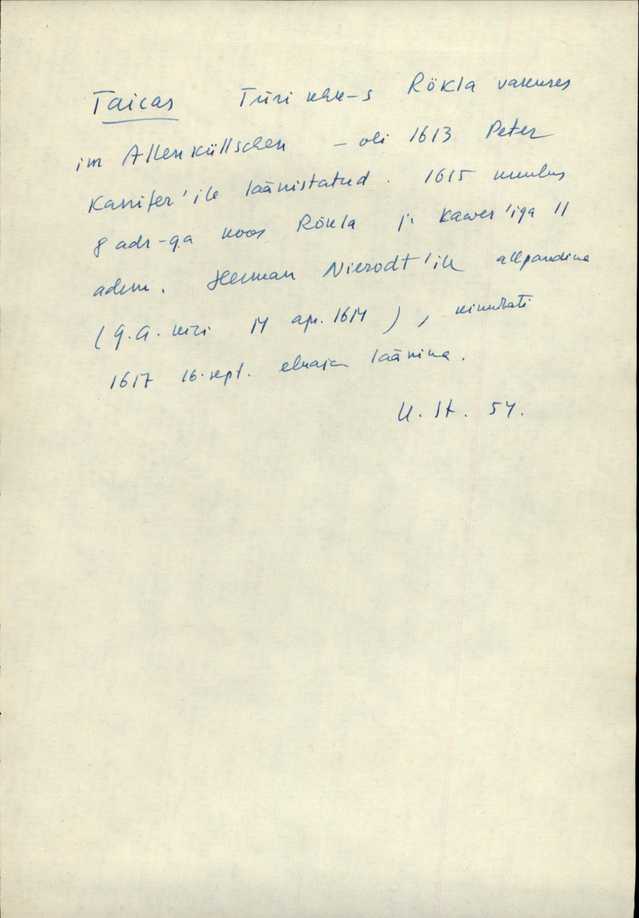 Taicas Türi khk-s Rökla vakuses
im Allenküllschen – oli 1613 Peter
Kannifer'ile läänistatud. 1615 kuulus
8 adr-ga koos Rökla ja Kawer'iga 11
adra. Herman Nierodt'ile allpandina
(G.A. kiri 14 apr. 1614), kinnitati
1617 16. sept. eluaja läänina.
U. St. 54.